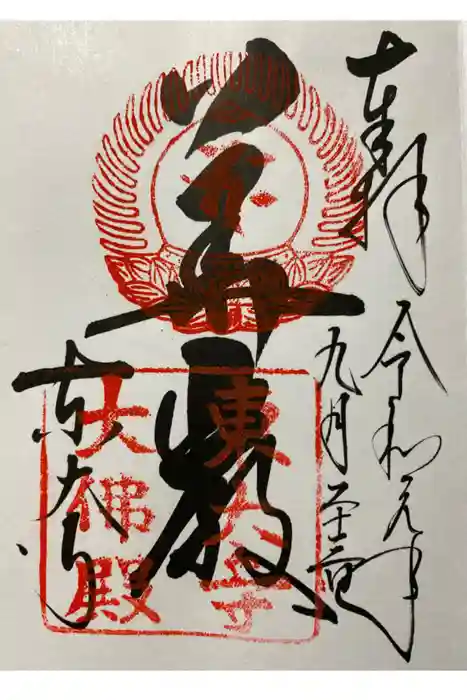 奉拝
令和元年
九月 廿一日
華厳
東大寺
東大寺
大佛殿